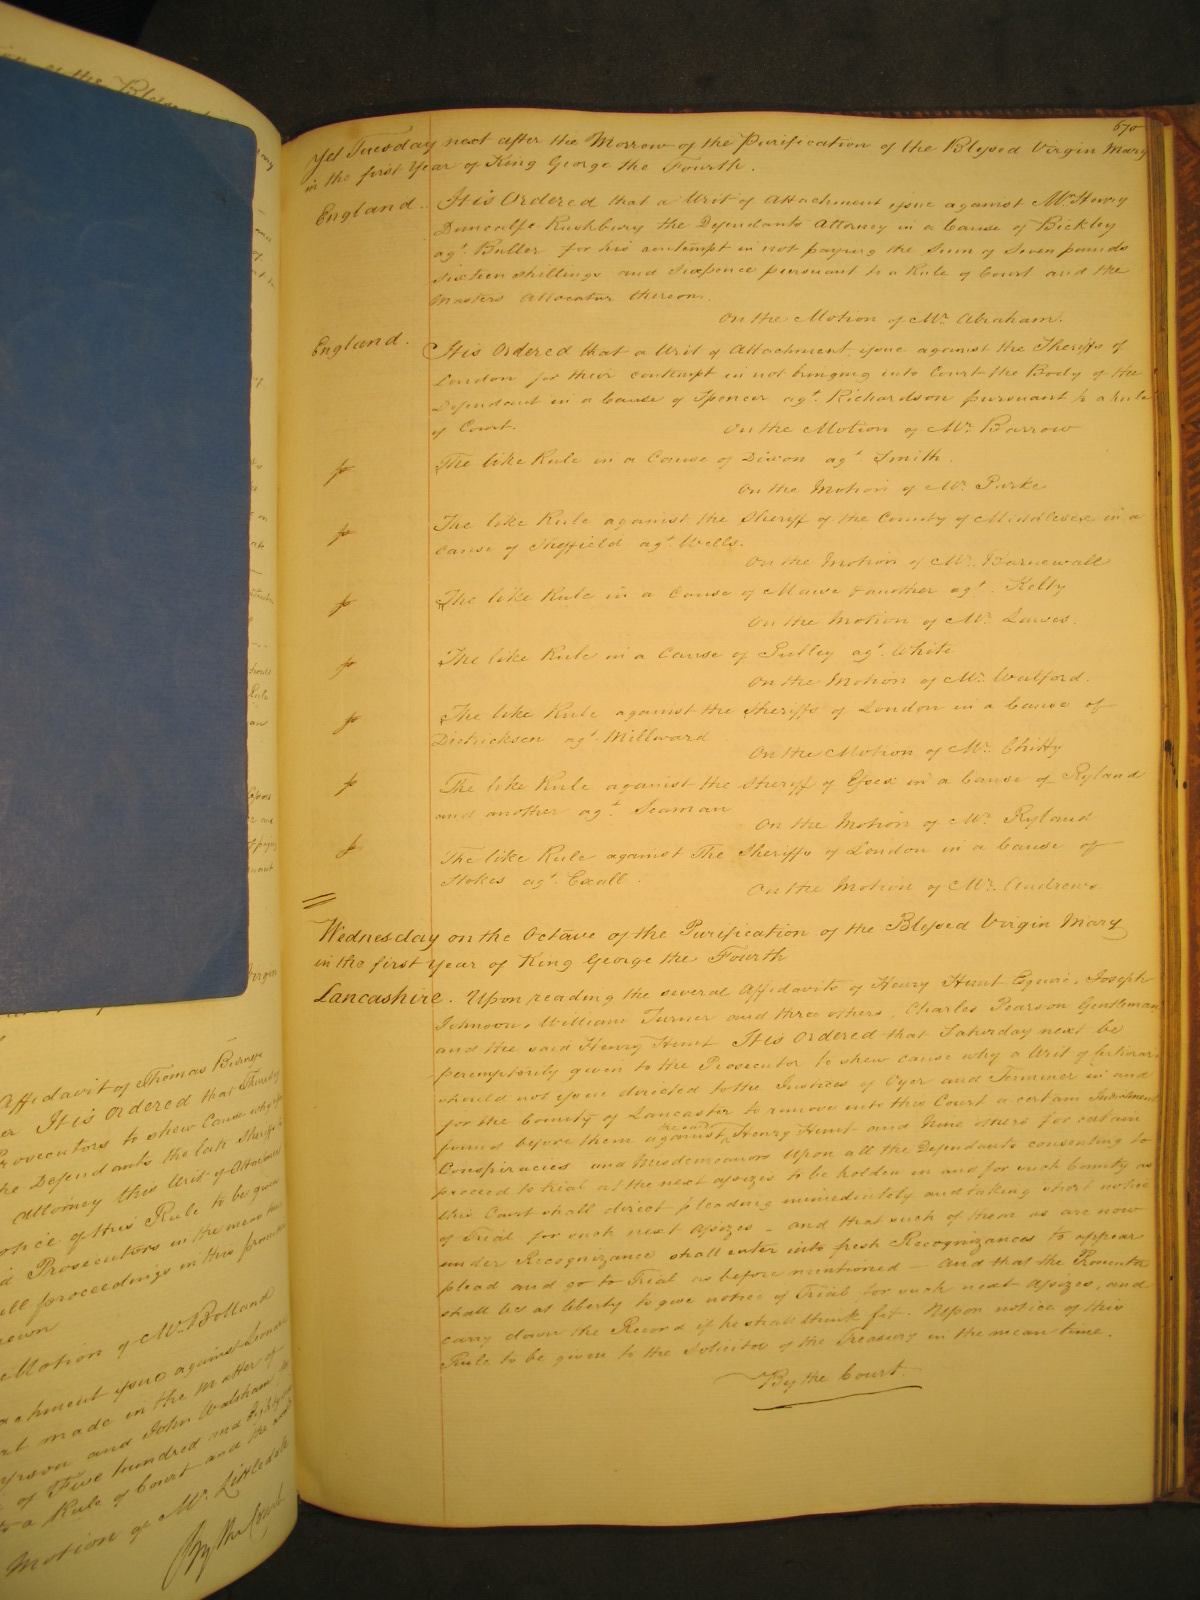 670
Yet Tuesday next after the Morrow of the Purification of the Blessed Virgin Mary
in the first Year of King George the Fourth.
England. It is Ordered that a Writ of Attachment issue against Mr. Henry
Duncalfe Rushbury the Defendants Attorney in a Cause of Bickley
agt. Buller for his contempt in not paying the Sum of Seven pounds
sixteen shillings and Sixpence pursuant to a Rule of Court and the
Masters Allocatur thereon.
On the Motion of Mr. Abraham.
England. It is Ordered that a Writ of Attachment issue against the Sheriffs of
London for their contempt in not bringing into Court the Body of the
Defendant in a Cause of Spencer agt. Richardson pursuant to a rule
of Court.
On the Motion of Mr. Barrow
The like Rule in a Cause of Dixon agt. Smith.
On the Motion of Mr. Purke
The like Rule against the Sheriff of the County of Middlesex in a
Cause of Sheffield agt. Wells.
On the Motion of Mr. Barnewall
The like Rule in a Cause of Mawe & another agt. Kelty
On the Motion of Mr. Lawes.
The like Rule in a Cause of Pulley agt. White
On the Motion of Mr. Walford.
The like Rule against the Sheriffs of London in a Cause of
Dietricksen agt. Millward
On the Motion of Mr. Chitty
The like Rule against the Sheriff of Essex in a Cause of Ryland
and another agt. Seaman
On the Motion of Mr. Ryland
The like Rule against The Sheriffs of London in a Cause of
Stokes agt. Exall.
On the Motion of Mr. Andrews
Wednesday on the Octave of the Purification of the Blessed Virgin Mary
in the first Year of King George the Fourth
Lancashire. Upon reading the several Affidavits of Henry Hunt Esquire, Joseph
Johnson, William Turner and three others, Charles Pearson Gentleman
and the said Henry Hunt It is Ordered that Saturday next be
peremptorily given to the Prosecutor to shew cause why a Writ of Certiorari
should not issue directed to the Justices of Oyer and Terminer in and
for the County of Lancaster to remove into this Court a certain Indictment
found before them against the said Henry Hunt and Nine others for certain
Conspiracies and Misdemeanors Upon all the Defendants consenting to
proceed to trial at the next assizes to be holden in and for such County as
this Court shall direct pleading immediately and taking short notice
of Trial for such next Assizes – and that such of them as are now
under Recognizance shall enter into fresh Recognizances to appear
plead and go to Trial as before mentioned – And that the Prosecutor
shall be at liberty to give notice of Trial for such next Assizes, and
carry down the Record if he shall think fit. Upon notice of this
Rule to be given to the Solicitor of the Treasury in the mean time.
By the Court.
Affidavit of Thomas Burnope
It is Ordered that Thursday
Prosecutors to shew Cause why
the Defendants the late Sheriff
Attorney this Writ of Attachment
notice of this Rule to be given
Prosecutors in the mean time
all proceedings in this
Motion of Mr. Bolland
Attachment issue against Leonard
made in the Matter of
and John Walsham
of Five hundred and Eighty
to a Rule of Court and the
Motion of Mr. Littledale
By the Court